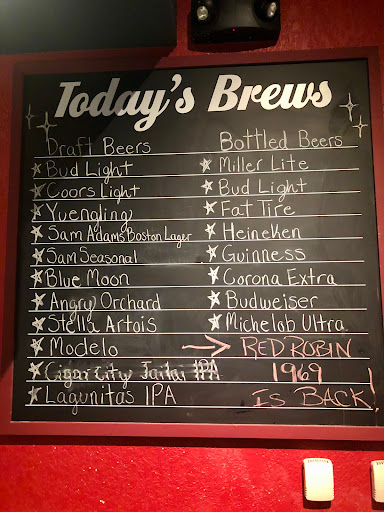 Today's Brews
Draft Beers
Bud Light
Coors Light
Yuengling
Sam Adams Boston Lager
Sam Seasonal
Blue Moon
Angry Orchard
Stella Artois
Modelo
Cigar City Jailai IPA
Lagunitas IPA
Bottled Beers
Miller Lite
Bud Light
Fat Tire
Heineken
Guinness
Corona Extra
Budweiser
Michelob Ultra
→ RED ROBIN
1969
IS BACK!